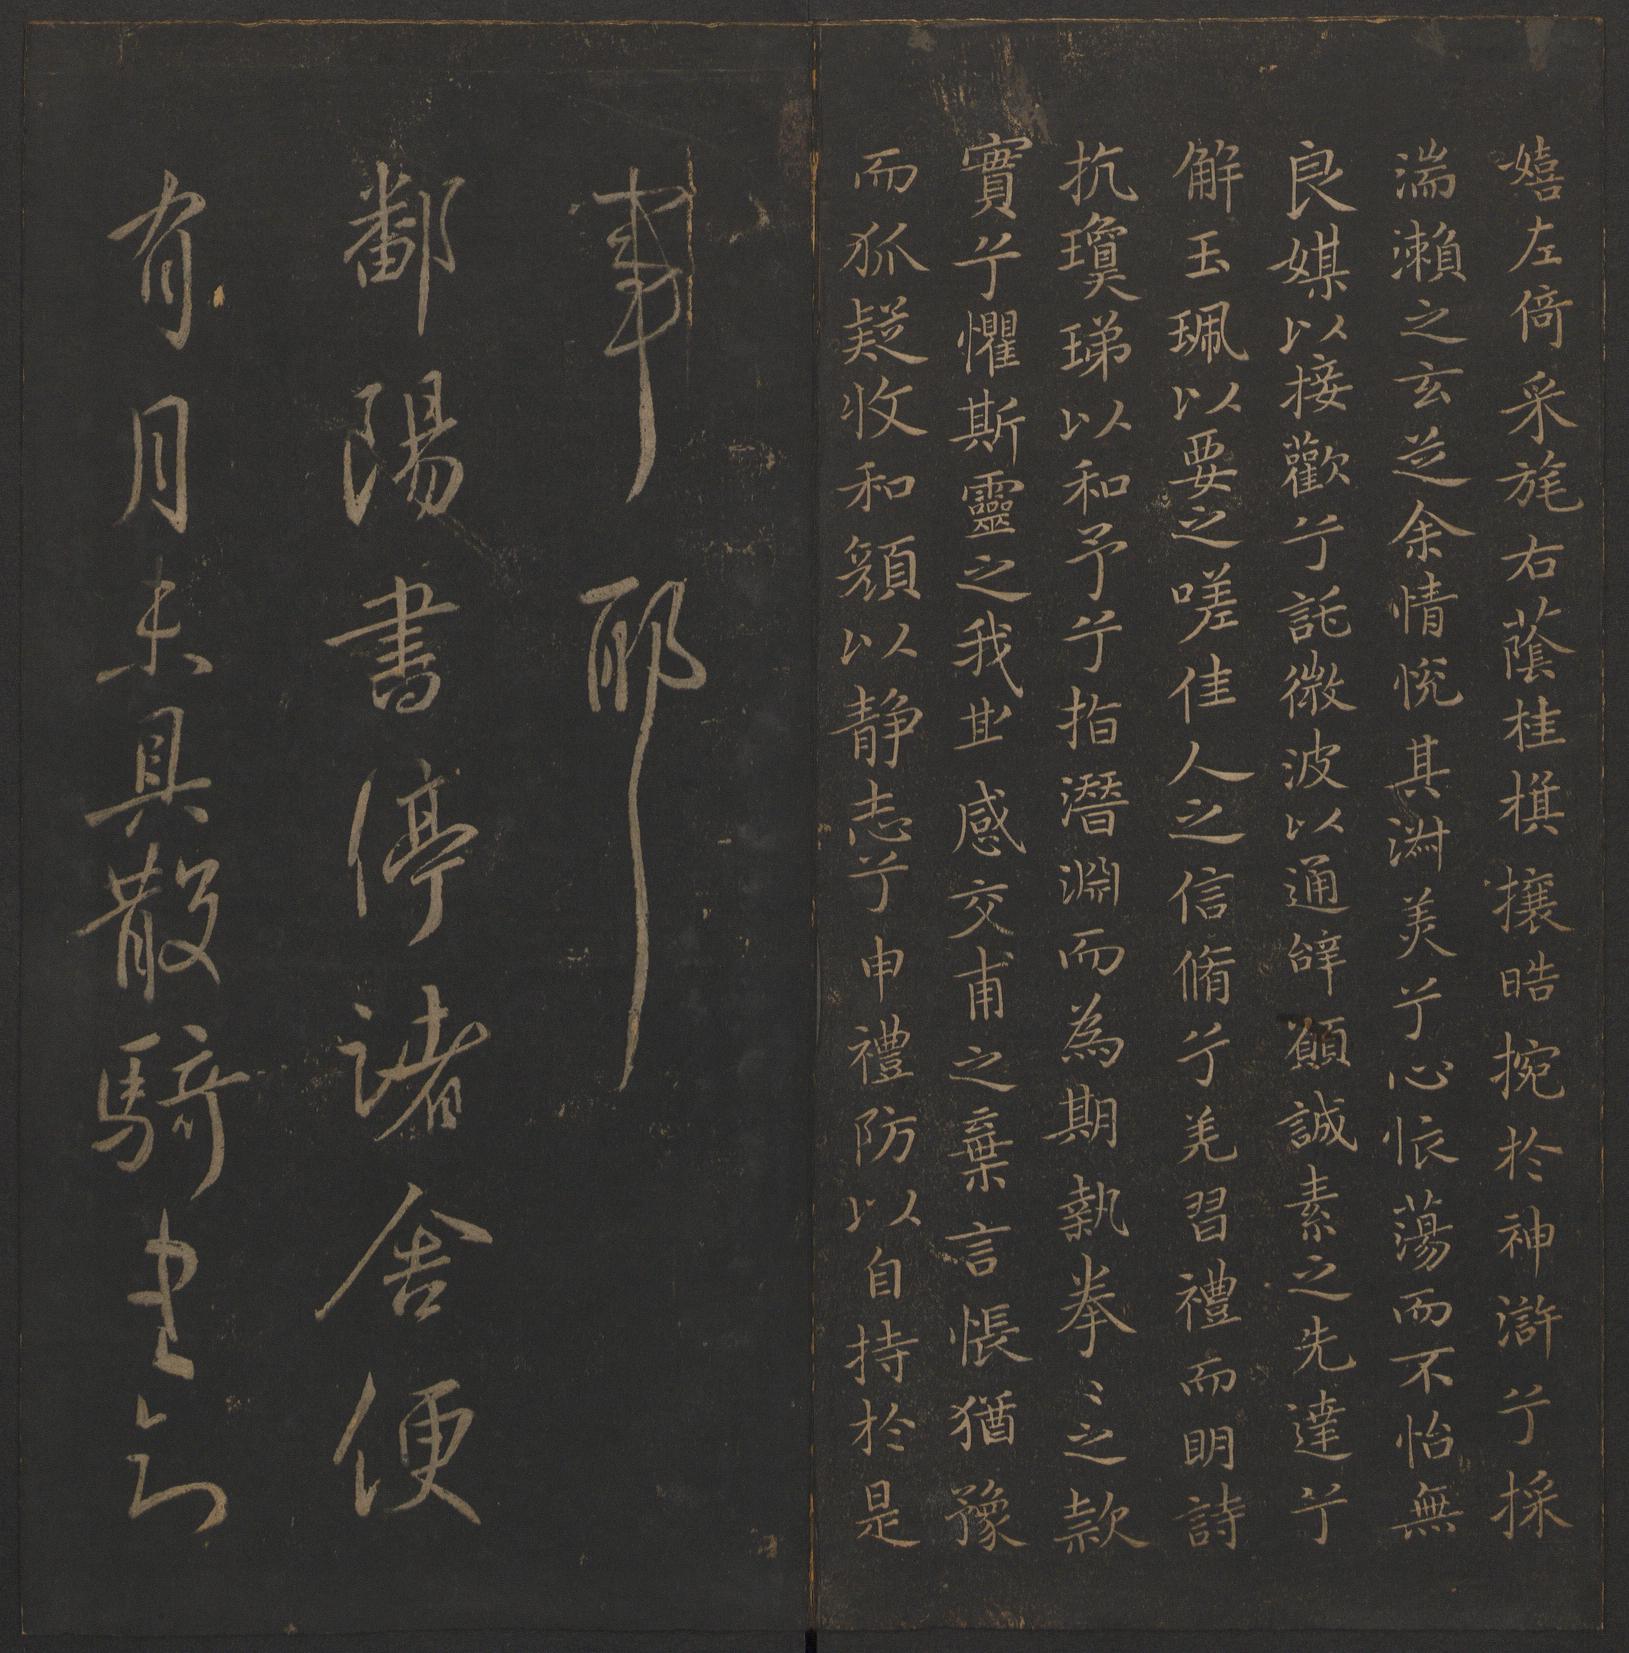 嬉左倚采旄右蔭桂棋攘晧捥於神滸兮採
湍瀨之玄芝余情悅其淋美兮心怅蕩而不怡無
良媒以接歡兮託微波以通辝願誠素之先達兮
解玉珮以要之嗟佳人之信脩兮羌習禮而明詩
抗瓊珶以和予兮指潛淵而為期執拳〻之款
實兮懼斯靈之我𠀍感交甫之棄言悵猶豫
而狐疑收和顏以靜志兮申禮防以自持於是
事耶
鄱陽書停諸舍便
有月未具散騎書